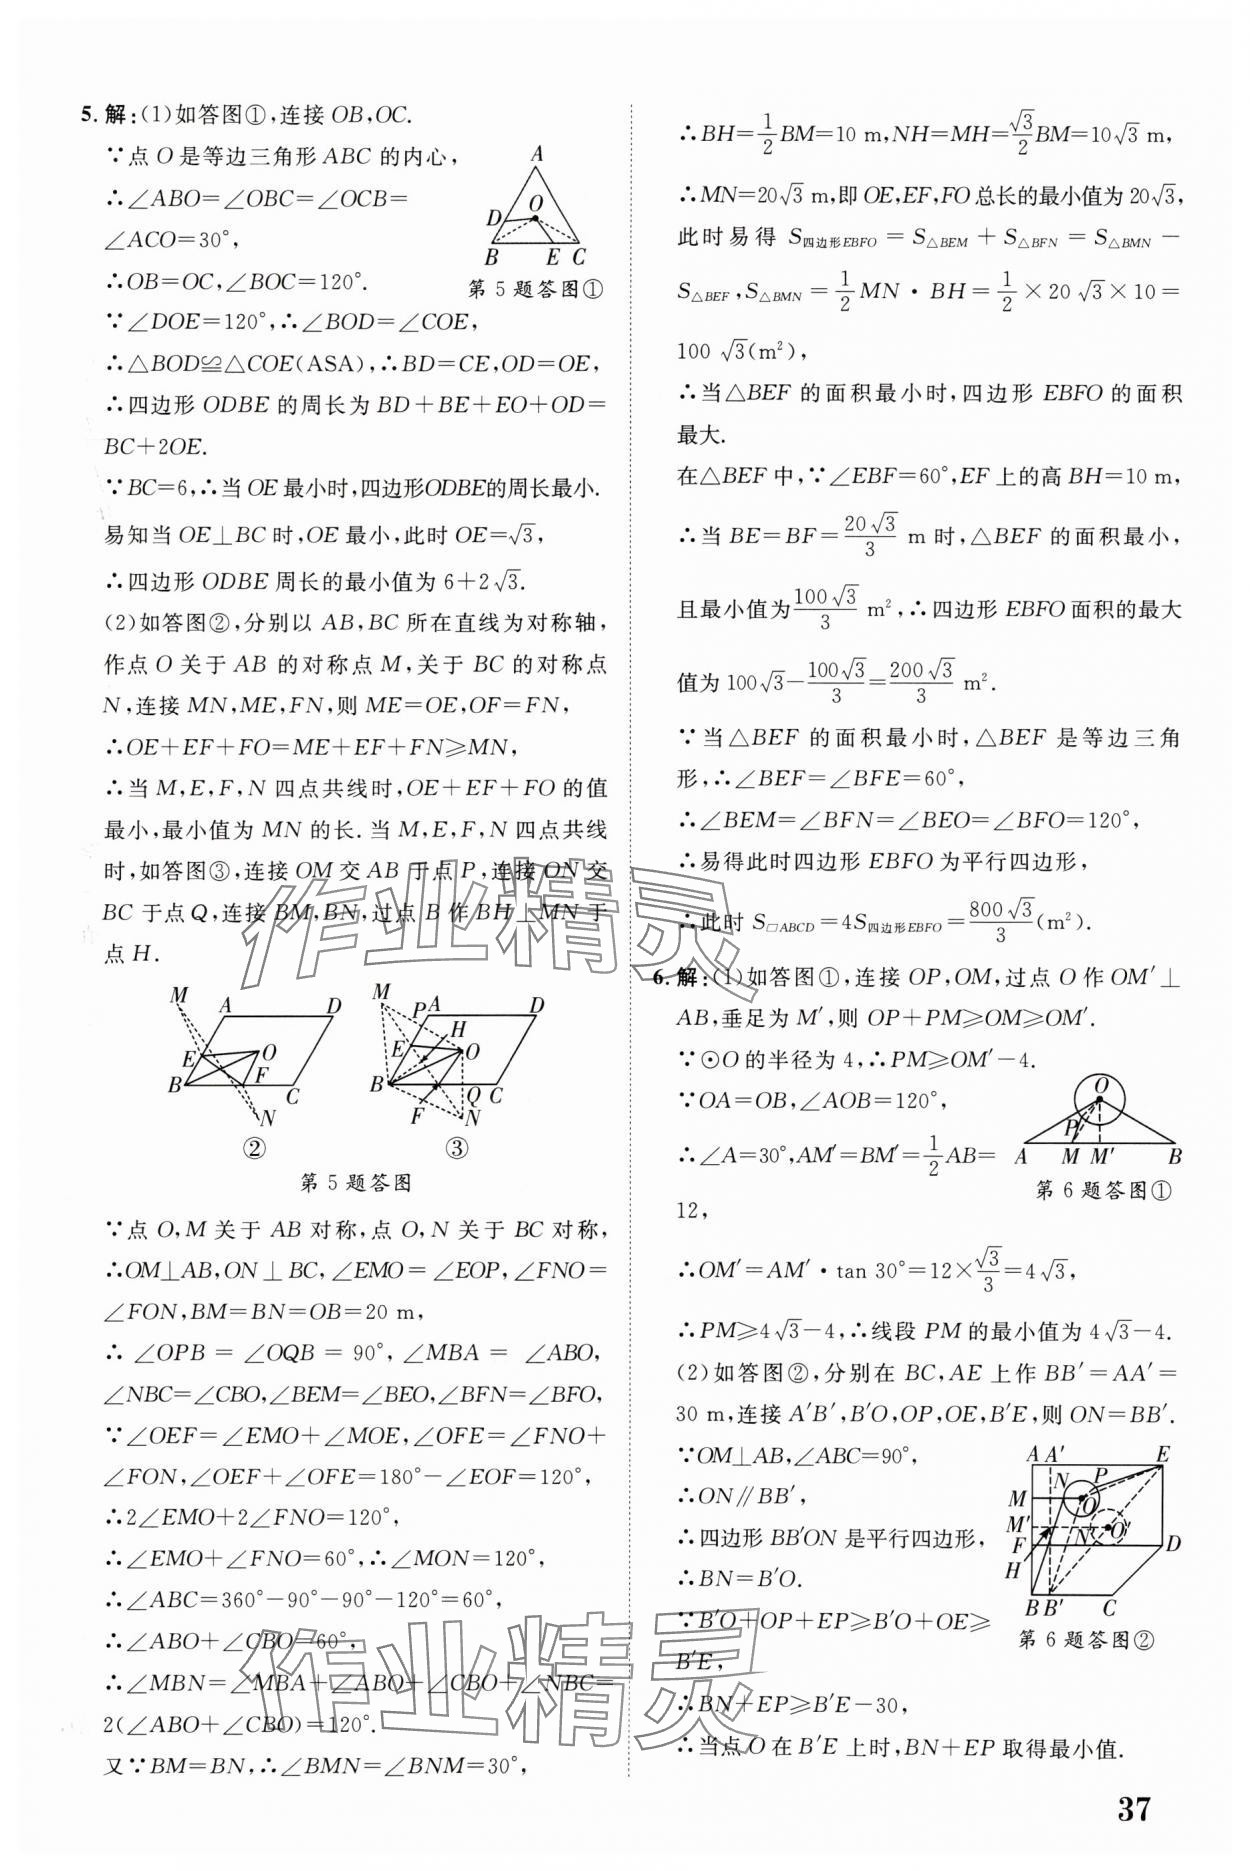 5. 解:(1)如答图①,连接 OB,OC.
∵点 O 是等边三角形 ABC 的内心,
∴∠ABO=∠OBC=∠OCB=
∠ACO=30°,
∴OB=OC,∠BOC=120°.
A
D
O
B
E
C
第 5 题答图①
∵∠DOE=120°,∴∠BOD=∠COE,
∴△BOD≌△COE(ASA),∴BD=CE,OD=OE,
∴四边形 ODBE 的周长为 BD+BE+EO+OD=
BC+2OE.
∵BC=6,∴当 OE 最小时,四边形ODBE的周长最小.
易知当 OE⊥BC 时,OE 最小,此时 OE=√3,
∴四边形 ODBE 周长的最小值为 6+2√3.
(2)如答图②,分别以 AB,BC 所在直线为对称轴,
作点 O 关于 AB 的对称点 M,关于 BC 的对称点
N,连接 MN,ME,FN,则 ME=OE,OF=FN,
∴OE+EF+FO=ME+EF+FN⩾MN,
∴当 M,E,F,N 四点共线时,OE+EF+FO 的值
最小,最小值为 MN 的长. 当 M,E,F,N 四点共线
时,如答图③,连接 OM 交 AB 于点 P,连接 ON 交
BC 于点 Q,连接 BM,BN,过点 B 作 BH⊥MN 于
点 H.
M
A
D
E
O
B
F
C
N
②
M
P
A
D
H
E
O
B
Q
C
F
N
③
第 5 题答图
∵点 O,M 关于 AB 对称,点 O,N 关于 BC 对称,
∴OM⊥AB,ON⊥BC,∠EMO=∠EOP,∠FNO=
∠FON,BM=BN=OB=20 m,
∴∠OPB=∠OQB=90°,∠MBA=∠ABO,
∠NBC=∠CBO,∠BEM=∠BEO,∠BFN=∠BFO,
∵∠OEF=∠EMO+∠MOE,∠OFE=∠FNO+
∠FON,∠OEF+∠OFE=180°−∠EOF=120°,
∴2∠EMO+2∠FNO=120°,
∴∠EMO+∠FNO=60°,∴∠MON=120°,
∴∠ABC=360°−90°−90°−120°=60°,
∴∠ABO+∠CBO=60°,
∴∠MBN=∠MBA+∠ABO+∠CBO+∠NBC=
2(∠ABO+∠CBO)=120°.
又∵BM=BN,∴∠BMN=∠BNM=30°,
∴BH=1/2BM=10 m,NH=MH=√3/2BM=10√3 m,
∴MN=20√3 m,即 OE,EF,FO 总长的最小值为 20√3,
此时易得 S四边形EBFO=S△BEM+S△BFN=S△BMN−
S△BEF,S△BMN=1/2MN·BH=1/2×20√3×10=
100√3(m²),
∴当△BEF 的面积最小时,四边形 EBFO 的面积
最大.
在△BEF 中,∵∠EBF=60°,EF 上的高 BH=10 m,
∴当 BE=BF=20√3/3 m 时,△BEF 的面积最小,
且最小值为100√3/3 m²,∴四边形 EBFO 面积的最大
值为 100√3−100√3/3=200√3/3 m².
∵当△BEF 的面积最小时,△BEF 是等边三角
形,∴∠BEF=∠BFE=60°,
∴∠BEM=∠BFN=∠BEO=∠BFO=120°,
∴易得此时四边形 EBFO 为平行四边形,
∴此时 S▱ABCD=4S四边形EBFO=800√3/3(m²).
6. 解:(1)如答图①,连接 OP,OM,过点 O 作 OM′⊥
AB,垂足为 M′,则 OP+PM⩾OM⩾OM′.
∵⊙O 的半径为 4,∴PM⩾OM′−4.
∵OA=OB,∠AOB=120°,
∴∠A=30°,AM′=BM′=1/2AB=
12,
O
P
A
M
M′
B
第 6 题答图①
∴OM′=AM′·tan 30°=12×√3/3=4√3,
∴PM⩾4√3−4,∴线段 PM 的最小值为 4√3−4.
(2)如答图②,分别在 BC,AE 上作 BB′=AA′=
30 m,连接 A′B′,B′O,OP,OE,B′E,则 ON=BB′.
∵OM⊥AB,∠ABC=90°,
∴ON∥BB′,
∴四边形 BB′ON 是平行四边形,
∴BN=B′O.
∵B′O+OP+EP⩾B′O+OE⩾
B′E,
∴BN+EP⩾B′E−30,
∴当点 O 在 B′E 上时,BN+EP 取得最小值.
A A′
E
N
P
M
O
M′
N′
O′
F
D
H
B B′
C
第 6 题答图②
37
作业精灵
作业精灵